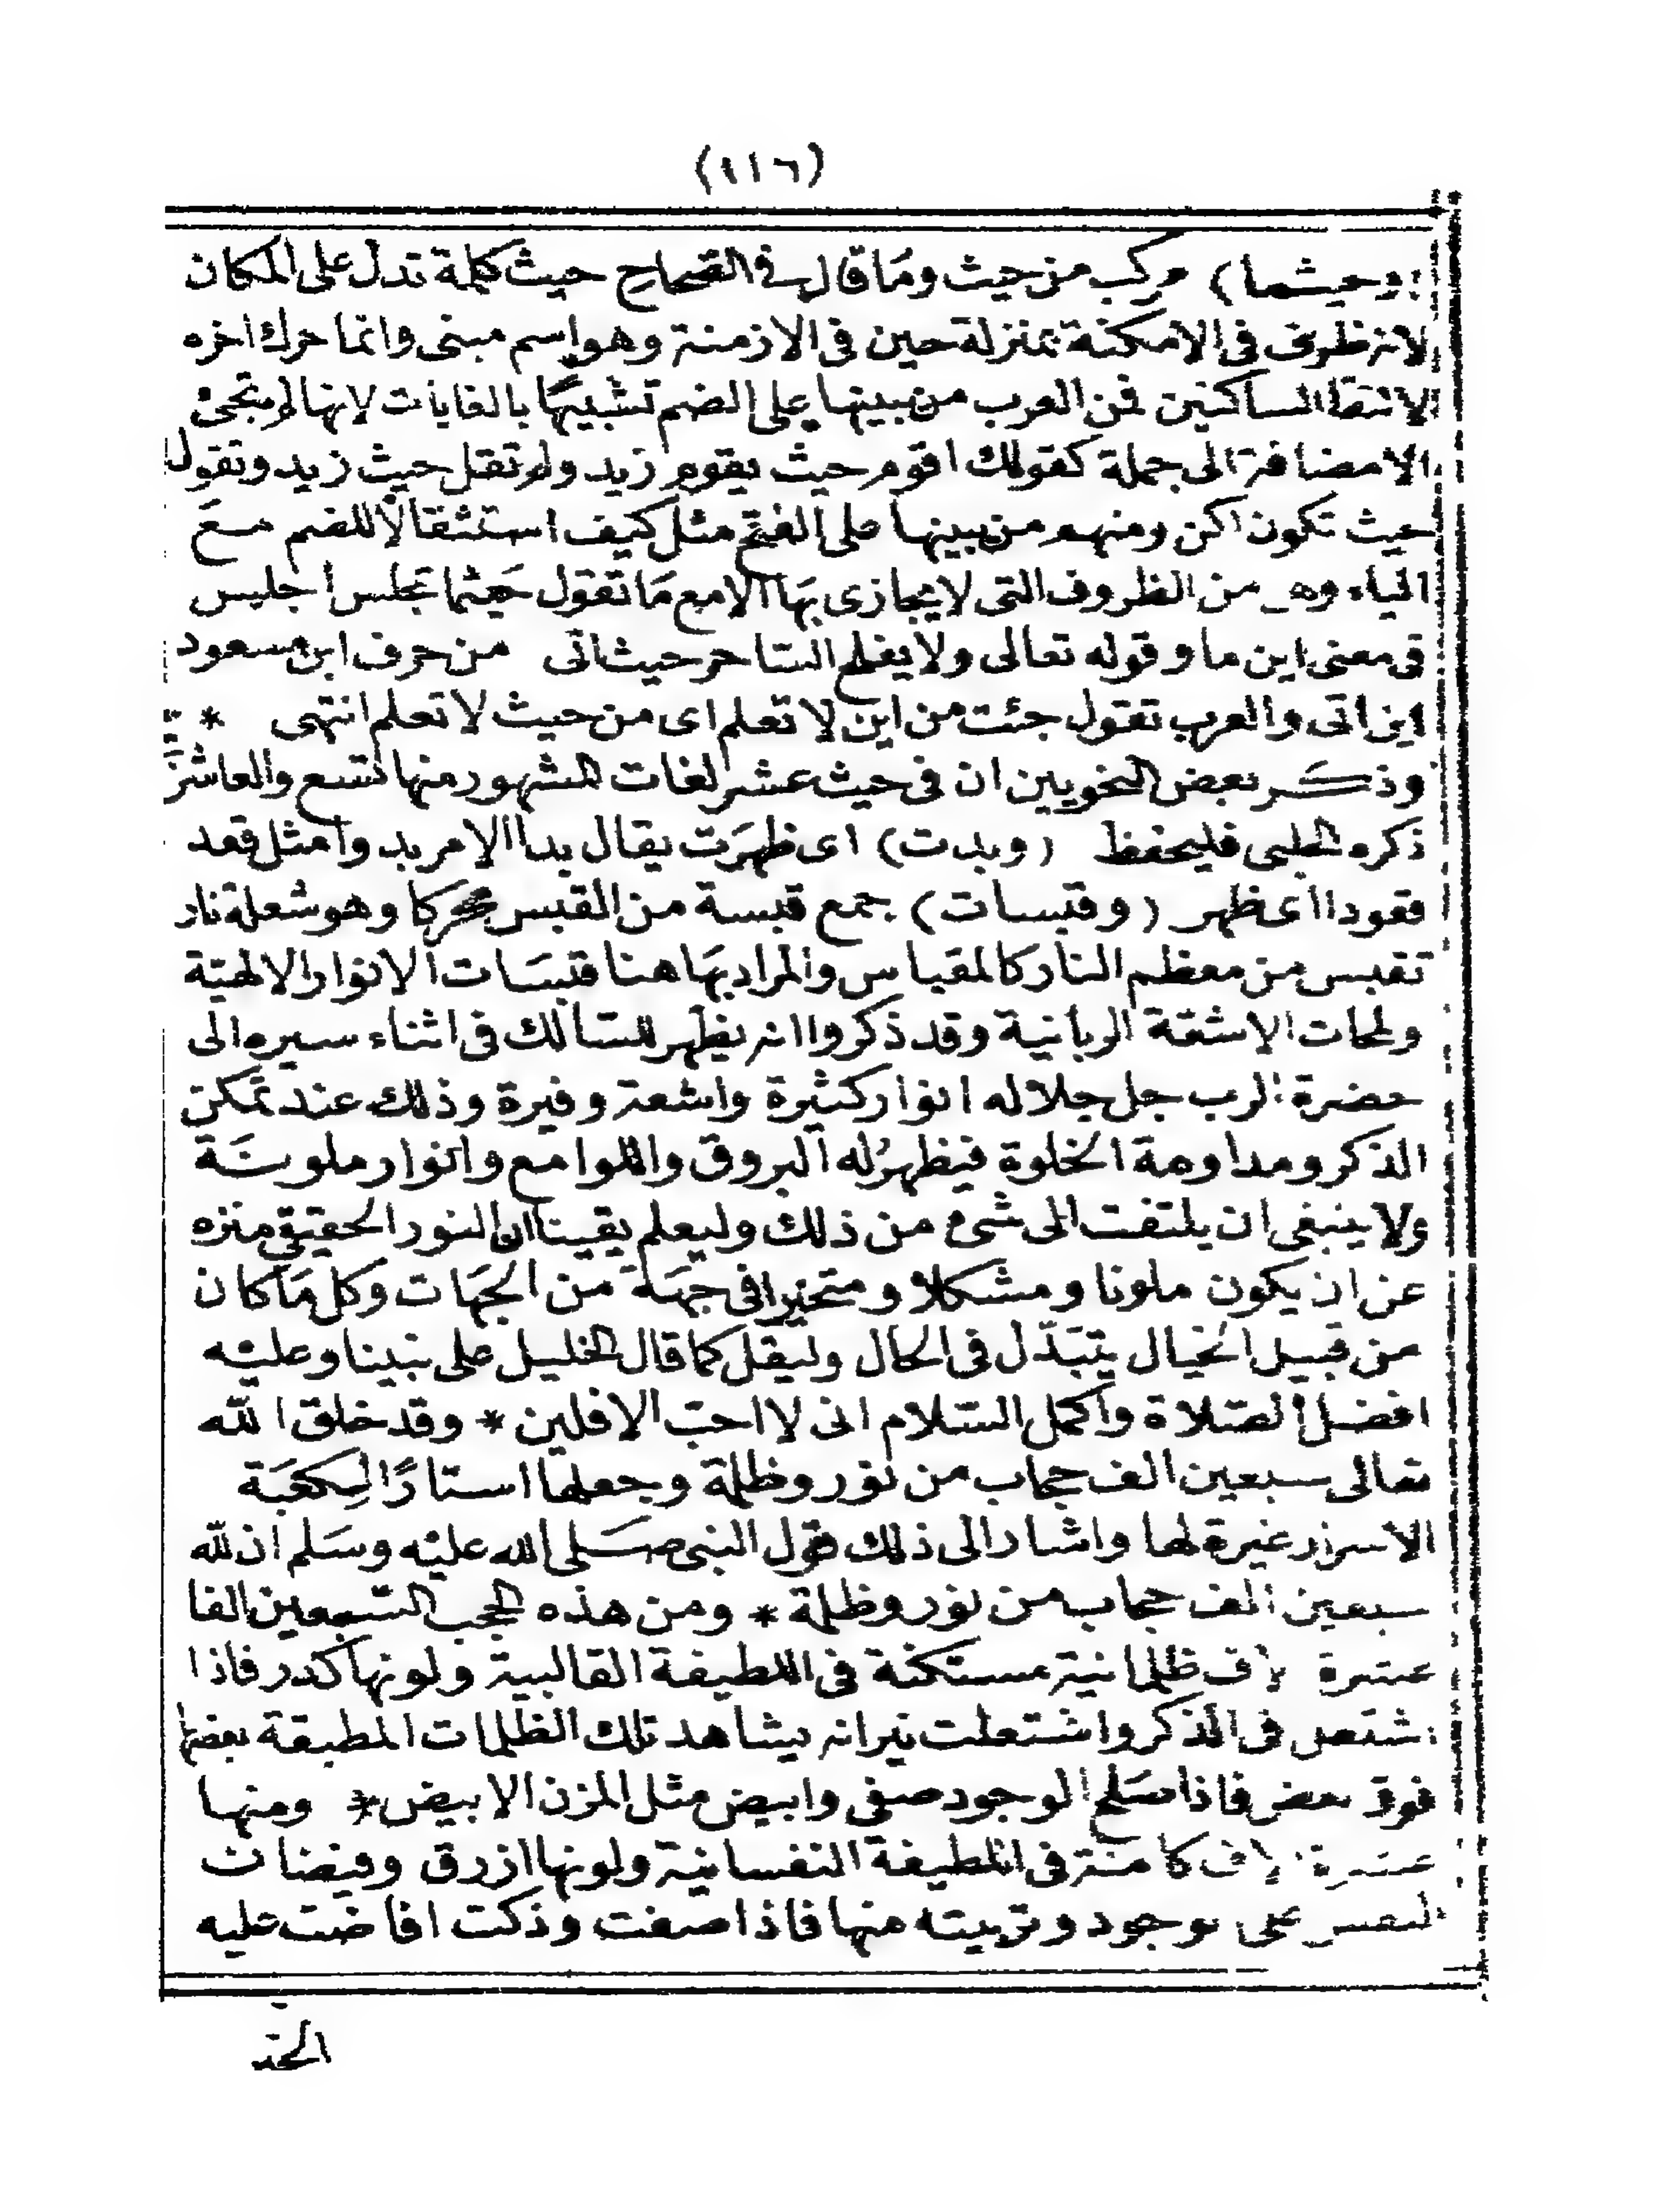 (١١٦)
(وحيثما) مركب من حيث وما قال في الصحاح حيث كلمة تدل على المكان
لانه ظرف في الامكنة بمنزلة حين في الازمنة وهو اسم مبنى وانما حرك اخره
لالتقا الساكنين فمن العرب من يبنيها على الضم تشبيهًا بالغايات لانها لم تجئ
الا مضافة الى جملة كقولك اقوم حيث يقوم زيد ولم تقل حيث زيد وتقول
حيث تكون اكن ومنهم من يبنيها على الفتح مثل كيف استثقالاً للضم مع
الياء وهى من الظروف التى لا يجازى بها الا مع ما تقول حيثما تجلس اجلس
في معنى اين ما وقوله تعالى ولا يفلح الساحر حيث اتى من حرف ابن مسعود
اين اتى والعرب تقول جئت من اين لا تعلم اى من حيث لا تعلم انتهى *
وذكر بعض النحويين ان فى حيث عشر لغات المشهور منها تسع والعاشرة
ذكره الطيبى فليحفظ (وبدت) اى ظهرت يقال بدا الامر بد وامثل قعد
قعودا اى ظهر (وقبسات) جمع قبسة من القبس محركا وهو شعلة نار
تقبس من معظم النار كالمقباس والمراد بها هنا قبسات الانوار الالهية
ولمحات الاشعة الربانية وقد ذكروا انه يظهر للسالك فى اثناء سيره الى
حضرة الرب جل جلاله انوار كثيرة واشعة وفيرة وذلك عند تمكن
الذكر ومداومة الخلوة فيظهر له البروق واللوامع وانوار ملونة
ولا ينبغى ان يلتفت الى شئ من ذلك وليعلم يقينا ان النور الحقيقي منزه
عن ان يكون ملونا ومشكلا ومتحيزا فى جهة من الجهات وكل ما كان
من قبيل الخيال يتبدّل فى الحال وليقل كما قال الخليل على نبينا وعليه
افضل الصلاة واكمل السلام انى لا احب الافلين * وقد خلق الله
تعالى سبعين الف حجاب من نور وظلمة وجعلها استارًا لكعبة
الاسرار غيرة لها واشار الى ذلك قول النبى صلى الله عليه وسلم ان لله
سبعين الف حجاب من نور وظلمة * ومن هذه الحجب السبعين الفا
عشرة الاف ظلمانية مستكنة فى اللطيفة القالبية ولونها كدر فاذا
اشتغل فى الذكر واشتعلت نيرانه يشاهد تلك الظلمات المطبقة بعضها
فوق بعض فاذا صلح الوجود صفى وابيض مثل المزن الابيض * ومنها
عشرة الاف كامنة فى اللطيفة النفسانية ولونها ازرق وفيضات
النفس على الوجود وتربيته منها فاذا صفت وذكت افاضت عليه